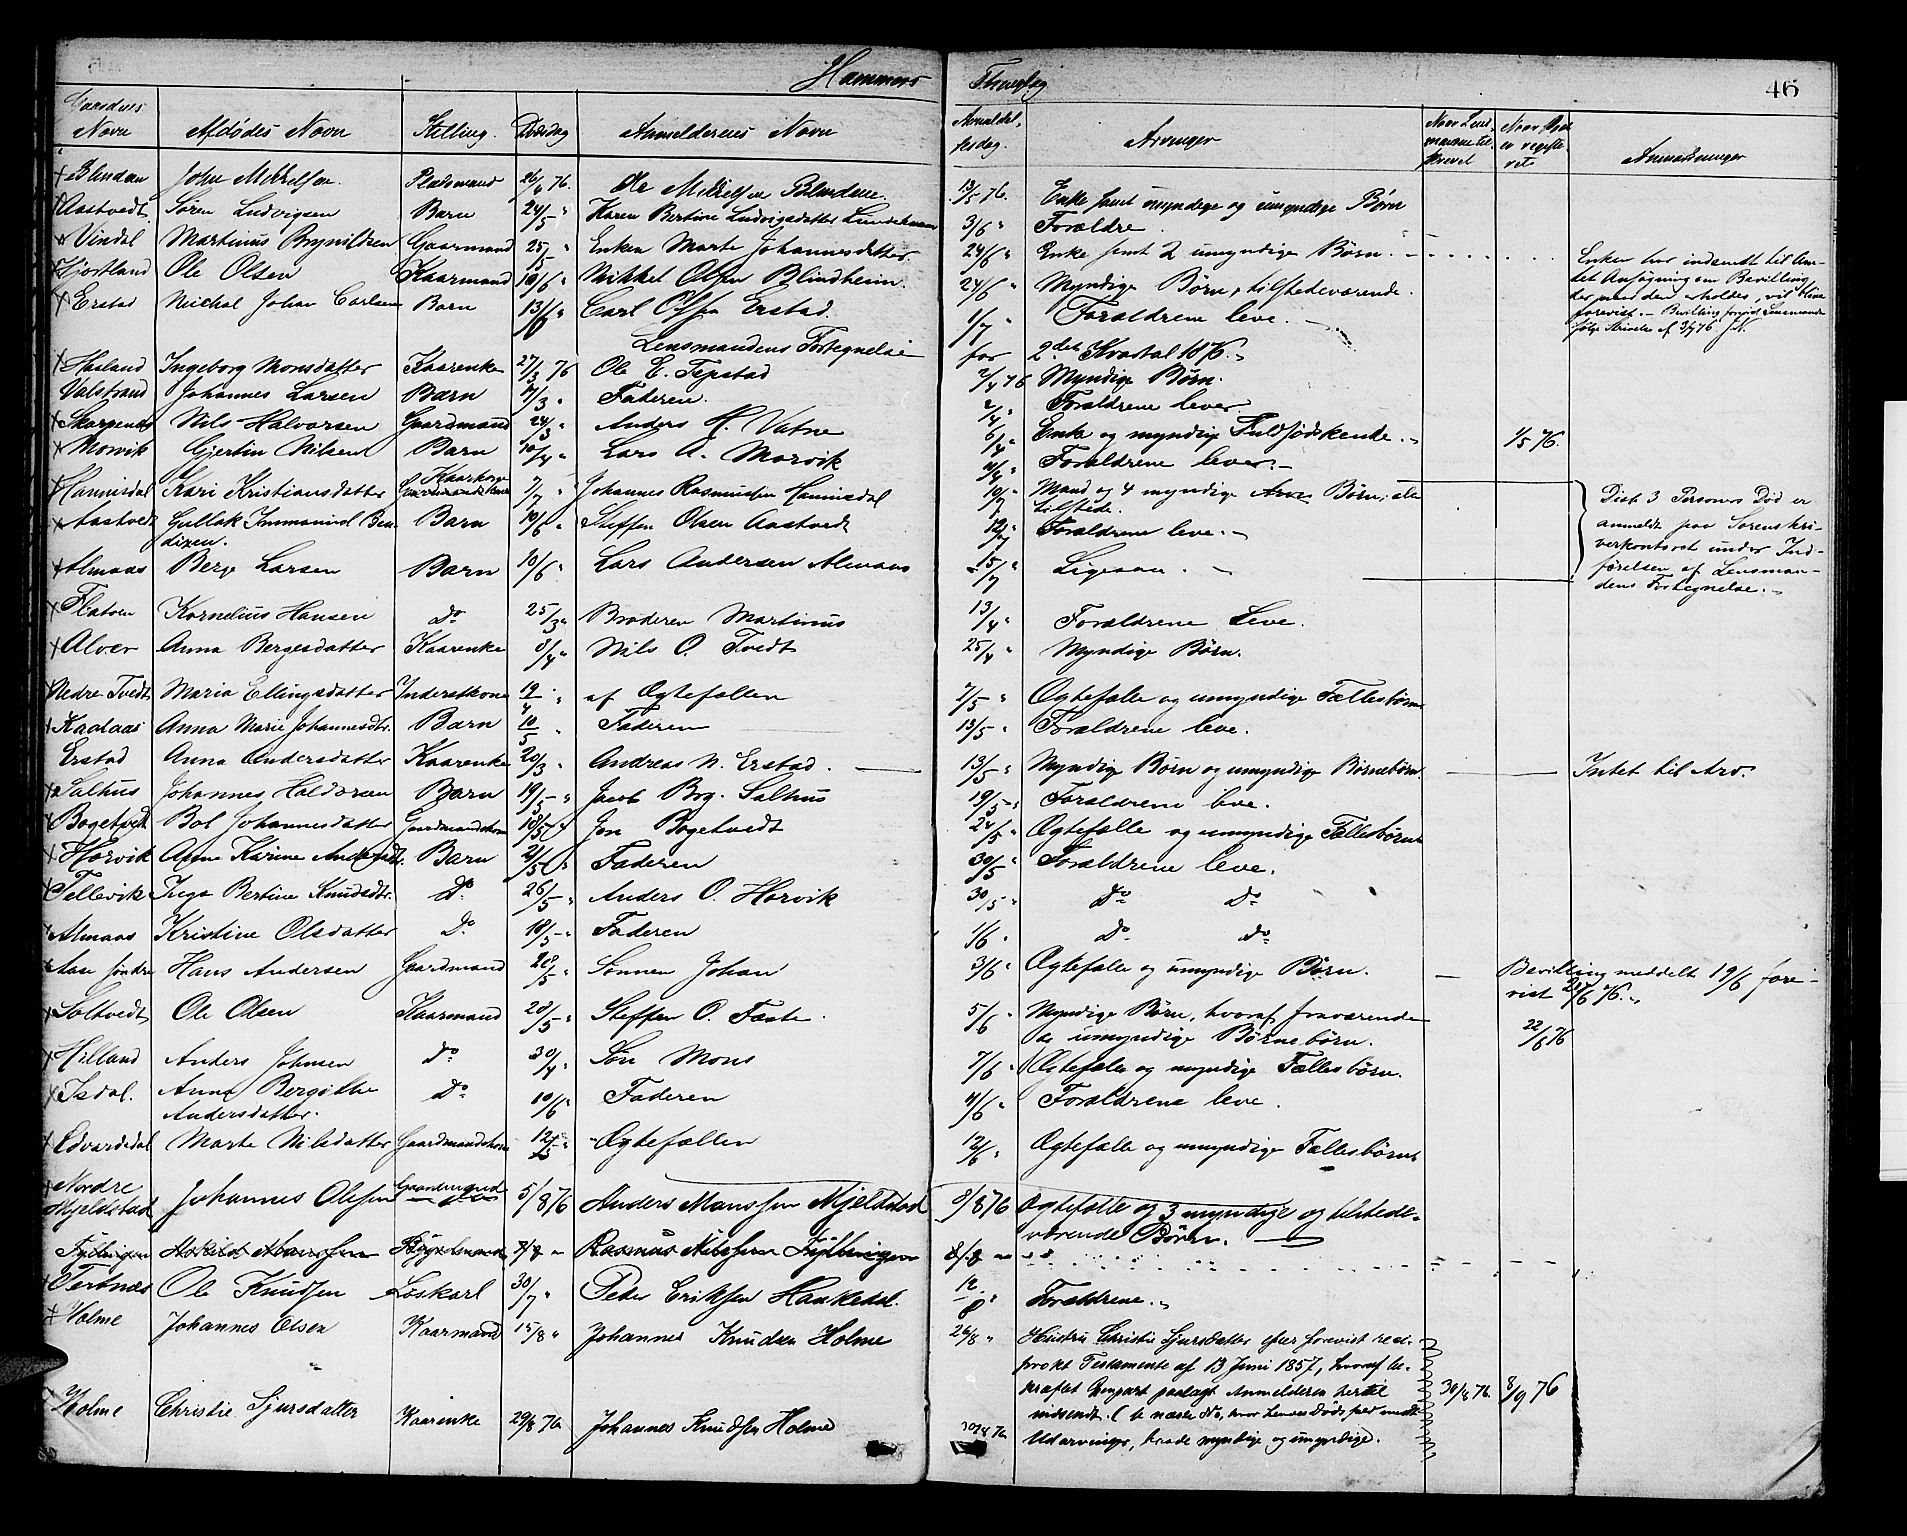 Hammers Thinglag 46
Gaardenes Navn Afdødes Navn Stilling. Dødsdag Anmelderens Navn Anmeldelsesdag. Arvinger Anmærkninger
Blindem John Mikkelsen. Pladsmand 26/4 76. Ole Mikkelsen Blindem 13/5 76. Enke samt myndige og umyndige Børn
Aastvedt Søren Ludvigsen Barn 24/5 " Karen Bertine Ludvigsdatter 3/6 " Forældre.
Vindal Martinus Brynildsen Gaarmand 25/5 " Enken Marte Johannesdatter 24/6 " Enke samt 2 umyndige Børn.
Enken har indsendt til Am-
tet Ansøgning om Bevilling
der, naar den erholdes, vil blive
forevist. -
Hjortland Ole Olsen Kaarmand 10/6 " Mikkel Olsen Blindheim. 24/6 " Myndige Børn, tilstedeværende.
Erstad Michal Johan Carlsen Barn 13/6 " Carl Olsen Erstad. 1/7 " Forældrene leve.
Lensmandens Fortegnelse for 2det Kvartal 1876.
Hasland Ingeborg Monsdatter Kaarenke 27/3 76 Ole E. Tepstad 2/4 76 Myndige Børn.
Valstrand Johannes Larsen Barn 17/3 " Faderen. 2/4 " Forældrene lever.
Skarpenæs Nils Halvorsen Gaardmand 24/3 " Anders H. Vatne 6/4 " Enke og myndig Fuldsødskende. 1/5 76.
Morvik Gjertin Nilsen Barn 10/4 " Lars A. Morvik 11/4 " Forældrene lever.
Hannisdal Kari Kristiansdatter Kaarkone 7/7 " Johannes Rasmussen Hannisdal 10/7 " Mand og 4 myndige Børn, alle
tilstede.
Disse 3 Personers Død er
anmeldt paa Sorenskri-
verkontoret under Ind-
førelsen af Lensman-
dens Fortegnelse.
Aastvedt Gullak Immanuel Ben- Barn 19/6 " Steffen Olsen Aastvedt 12/7 " Forældrene leve.
dixen.
Almaas Berge Larsen Barn 10/6 " Lars Andersen Almaas 15/7 " Ligesaa.
Flatøen Kornelius Hansen Do 25/3 " Broderen Martinus 13/4 " Forældrene Leve.
Alver Anna Bergesdatter Kaarenke 8/4 " Nils O. Tvedt 25/4 " Myndige Børn.
Nedre Tvedt Maria Ellingsdatter Inderstkone 19/4 " af Ægtefællen 7/5 " Ægtefælle og umyndige Fællesbørn
Kaalaas Anna Marie Johannesdtr. Barn 10/5 " Faderen 13/5 " Forældrene leve.
Erstad Anna Andersdatter Kaarenke 20/3 " Andreas N. Erstad. 13/5 " Myndig Børn og umyndige Børnebørn. Intet til Arv.
Salhus Johannes Haldorsen Barn 19/5 " Jacob Bog. Salhus 19/5 " Forældrene leve.
Bogetvedt Bol Johannesdatter Gaardmandskone 18/5 " Jon Bogetvedt 24/5 " Ægtefælle og umyndige Fællesbørn
Horvik Anne Karine Andersdt. Barn 21/5 " Faderen 30/5 " Forældrene leve.
Tellevik Inga Bertine Knudsdtr. Do 26/5 " Anders O. Horvik 30/5 " Do Do
Almaas Kristine Olsdatter Do 18/5 " Faderen 1/6 " Do Do
Aase søndre Hans Andersen Gaardmand 28/5 " Sønnen Johan 3/6 " Ægtefælle og umyndige Børn. Bevilling meddelt 19/6 fore-
vist 20/6 76.
Soltvedt Ole Olsen Kaarmand 28/5 " Steffen O. Fæste. 5/6 " Myndige Børn, hvoraf fraværende
umyndige Børnebørn. 22/6 76
Hilland Anders Johnsen Do 30/4 " Søn Mons 7/6 " Ægtefælle og myndige Fællesbørn.
Isdal. Anna Bergithe Do 10/6 " Faderen 11/6 " Forældrene leve.
Andersdatter.
Edvardsdal Marte Nilsdatter Gaardmandskone 12/5 " Ægtefællen 12/6 " Ægtefælle og umyndige Fællesbørn
Nordre
Mjeldstad Johannes Olsen 5/8 76 Anders Monssen Mjeldstad 8/8 76 Ægtefælle og 3 myndige og tilstede-
værende Børn.
Fyllingen Rasmus Nilssen Fyllingen 8/8
Tertnæs Ole Knudsen Løskarl 30/7 " Peder Eriksen Haukedal. 12/8 " Forældrene.
Holme Johannes Olsen Kaarmand 15/8 " Johannes Knudsen Holme 26/8 " Hustru Christie Sjursdatter efter forevist reci-
prokt Testamente af 13 Juni 1857, hvoraf be-
kræftet Gjenpart
indsendt.
Holme Christie Sjursdatter Kaarenke 29/8 76 Johannes Knudsen Holme 30/8 76 Udarvinger, baade myndige og umyndige. 30/8 76. 8/9 76